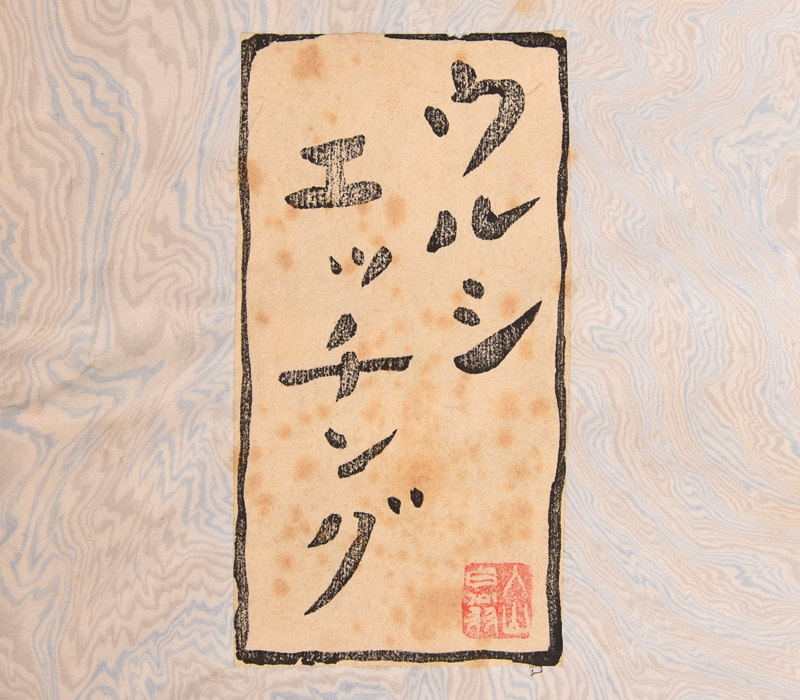 ウルシ
エッチング